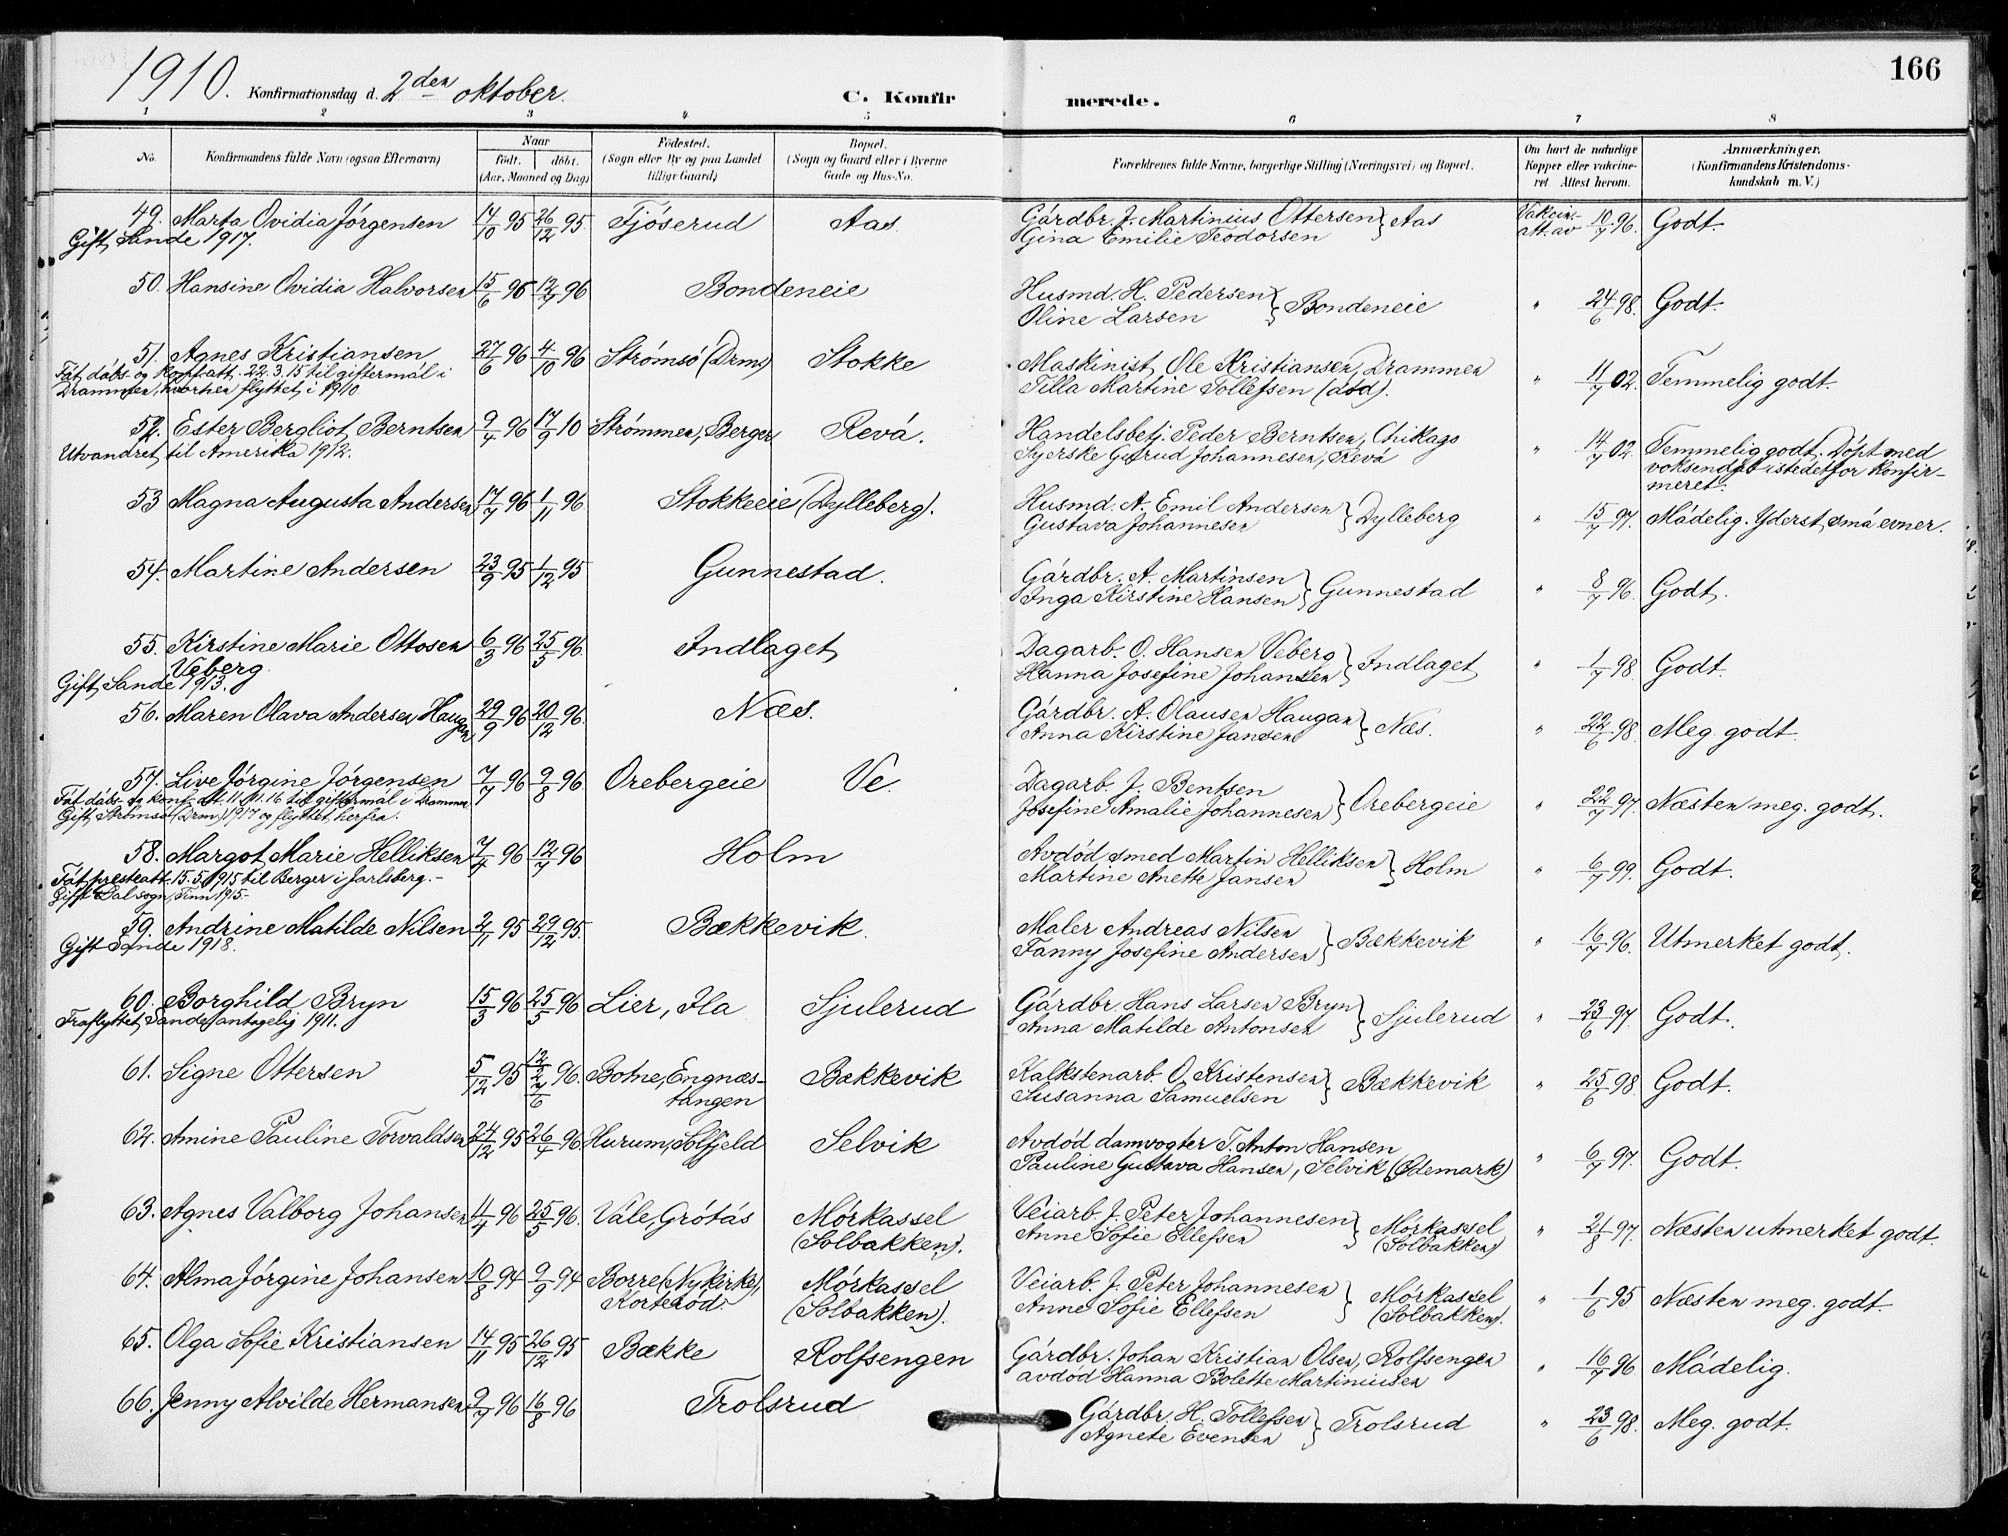 1910. Konfirmationsdag d. 2den oktober. C. Konfirmerede. 166
1 2 3 4 5 6 7 8
No. Konfirmandens fulde Navn (ogsaa Efternavn) Naar født. døbt. (Aar, Maaned og Dag) Fødested. (Sogn eller By og paa Landet tillige Gaard) Bopæl. (Sogn og Gaard eller i Byerne Gade og Hus-No. Forældrenes fulde Navne, borgerlige Stilling (Næringsvei) og Bopæl. Om havt de naturlige Kopper eller vakcineret. Attest herom. Anmærkninger. (Konfirmandens Kristendomskundskab m. V.)
49. Marta Ovidia Jørgensen 14/10 95 26/12 95. Fjøserud Aas. Gårdbr. J. Martinius Ottersen } Aas Vakcin.- 10/7 96. Godt.
Gift, Sande 1917. Gina Emilie Teodorsen att. av
50. Hansine Ovidia Halvorsen 15/6 96 12/7 96 Bondeneie Husmd. H. Pedersen } Bondeneie " 24/6 98. Godt.
Oline Larsen
51. Agnes Kristiansen 27/6 96 4/10 96 Strømsø (Drm.) Stokke Maskinist Ole Kristiansen, Drammen " 11/7 02. Temmelig godt.
Fåt dåbs- og konf. att. 22.3.15 til giftermål i Tilla Martine Tollefsen (død).
Drammen, hvorhen flyttet i 1910.
52. Ester Bergliot Berntsen 9/4 96 17/9 10 Strømmen, Berger Revå. Handelsbetj. Peder Berntsen, Chikago " 14/7 02. Temmelig godt. Døpt med
Utvandret til Amerika 1912. Syerske Gurud Johannesen, Revå voksendåb istedetfor konfir-
meret.
53 Magna Augusta Andersen 17/7 96 1/11 96. Stokkeeie (Dylleberg). Husmd. A. Emil Andersen } Dylleberg " 15/7 97. Mådelig. Yderst små evner.
Gustava Johannesen
54. Martine Andersen 23/9 95 1/12 95 Gunnestad. Gårdbr. A. Martinsen } Gunnestad " 8/7 96. Godt.
Inga Kirstine Hansen
55. Kirstine Marie Ottosen 6/3 96 25/5 96. Indlaget Dagarb. O. Hansen Veberg } Indlaget " 1/7 98. Godt.
Veberg Hanna Josefine Johansen
Gift, Sande 1913.
56. Maren Olava Andersen Haugan 29/9 96 20/12 96. Næs. Gårdbr. A. Olausen Haugan } Næs. " 22/6 98. Meg. godt.
Anna Kirstine Jansen
57. Live Jørgine Jørgensen 7/7 96 9/8 96. Orebergeie Ve. Dagarb. J. Bentsen } Orebergeie " 22/7 97. Næsten meg. godt.
Fåt dåbs- og konf. att. 11.11.16 til giftermål i Drammen Josefine Amalie Johannesen
Gift, Strømsø (Drm.) 1917 og flyttet herfra.
58. Margot Marie Helliksen 7/4 96 12/7 96 Holm Avdød smed Martin Helliksen } Holm " 6/7 99. Godt.
Fåt presteatt. 15.5.1915 til Berger i Jarlsberg.- Martine Anette Jansen
Gift Dal sogn, Tinn 1915.-
59. Andrine Matilde Nilsen 2/11 95 29/12 95. Bækkevik. Maler Andreas Nilsen } Bækkevik " 16/7 96. Utmerket godt.
Gift Sande 1918. Fanny Josefine Andersen
60. Borghild Bryn 15/3 96 25/5 96 Lier, Ila Sjulerud Gårdbr. Hans Larsen Bryn } Sjulerud " 23/6 97. Godt.
Fraflyttet Sande antagelig 1911. Anna Matilde Antonsen
61. Signe Ottersen 5/12 95 12/2 7/6 96. Botne, Engnæs- Bækkevik Kalkstenarb. O. Kristensen } Bækkevik " 25/6 98. Godt.
tangen Susanna Samuelsen
62. Amine Pauline Torvaldsen 24/12 95 26/4 96. Hurum, Solfjeld Selvik Avdød damvogter T. Anton Hansen " 6/7 97. Godt.
Pauline Gustava Hansen, Selvik (Ødemark)
63. Agnes Valborg Johansen 11/4 96 25/5 96. Våle, Grøtås Mørkassel Veiarb. J. Peter Johannesen } Mørkassel " 21/8 97. Næsten utmerket godt.
(Solbakken). Anne Sofie Ellefsen (Solbakken)
64. Alma Jørgine Johansen 10/8 94 9/9 94 Borre (Nykirke), Mørkassel Veiarb. J. Peter Johannesen } Mørkassel " 1/6 95 Næsten meg. godt.
Korterød. (Solbakken). Anne Sofie Ellefsen (Solbakken).
65. Olga Sofie Kristiansen 14/11 95 26/12 95 Bække Rolfsengen Gårdbr. Johan Kristian Olsen, Rolfsengen " 16/7 96 Mådelig.
avdød Hanna Bolette Martiniusen
66. Jenny Alvilde Hermansen 9/7 96 16/8 96 Trolsrud Gårdbr. H. Tollefsen } Trolsrud " 23/6 98. Meg. godt.
Agnete Evensen